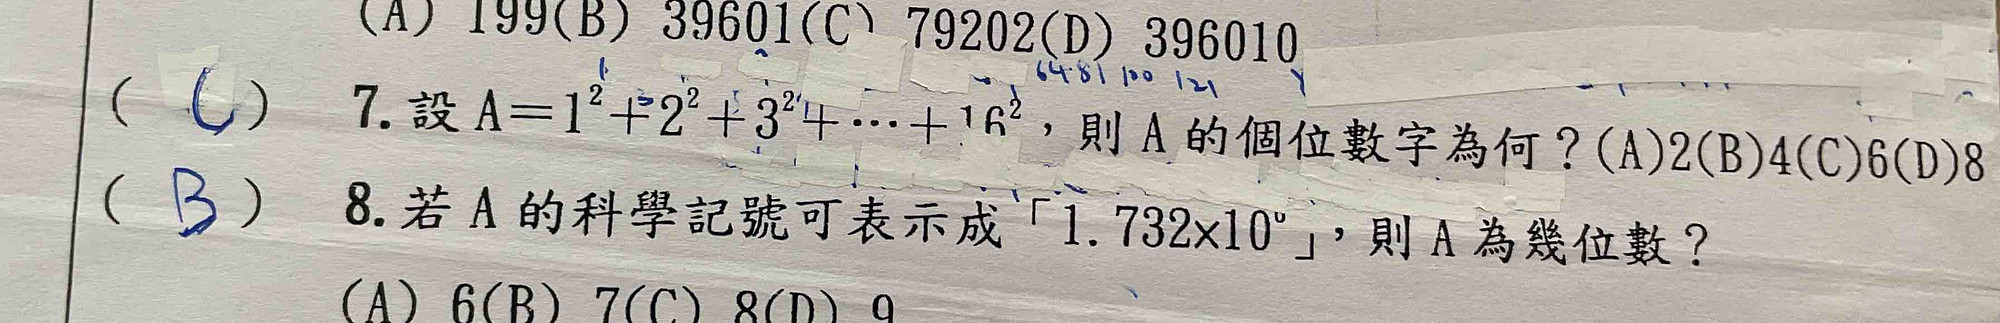 (A) 199(B) 39601(C) 79202(D) 396010
64 81 100 121
( C ) 7. 設 A=1²+2²+3²+⋯+16²，則 A 的個位數字為何？(A)2(B)4(C)6(D)8
( B ) 8. 若 A 的科學記號可表示成「1.732×10」，則 A 為幾位數？
(A) 6(B) 7(C) 8(D) 9